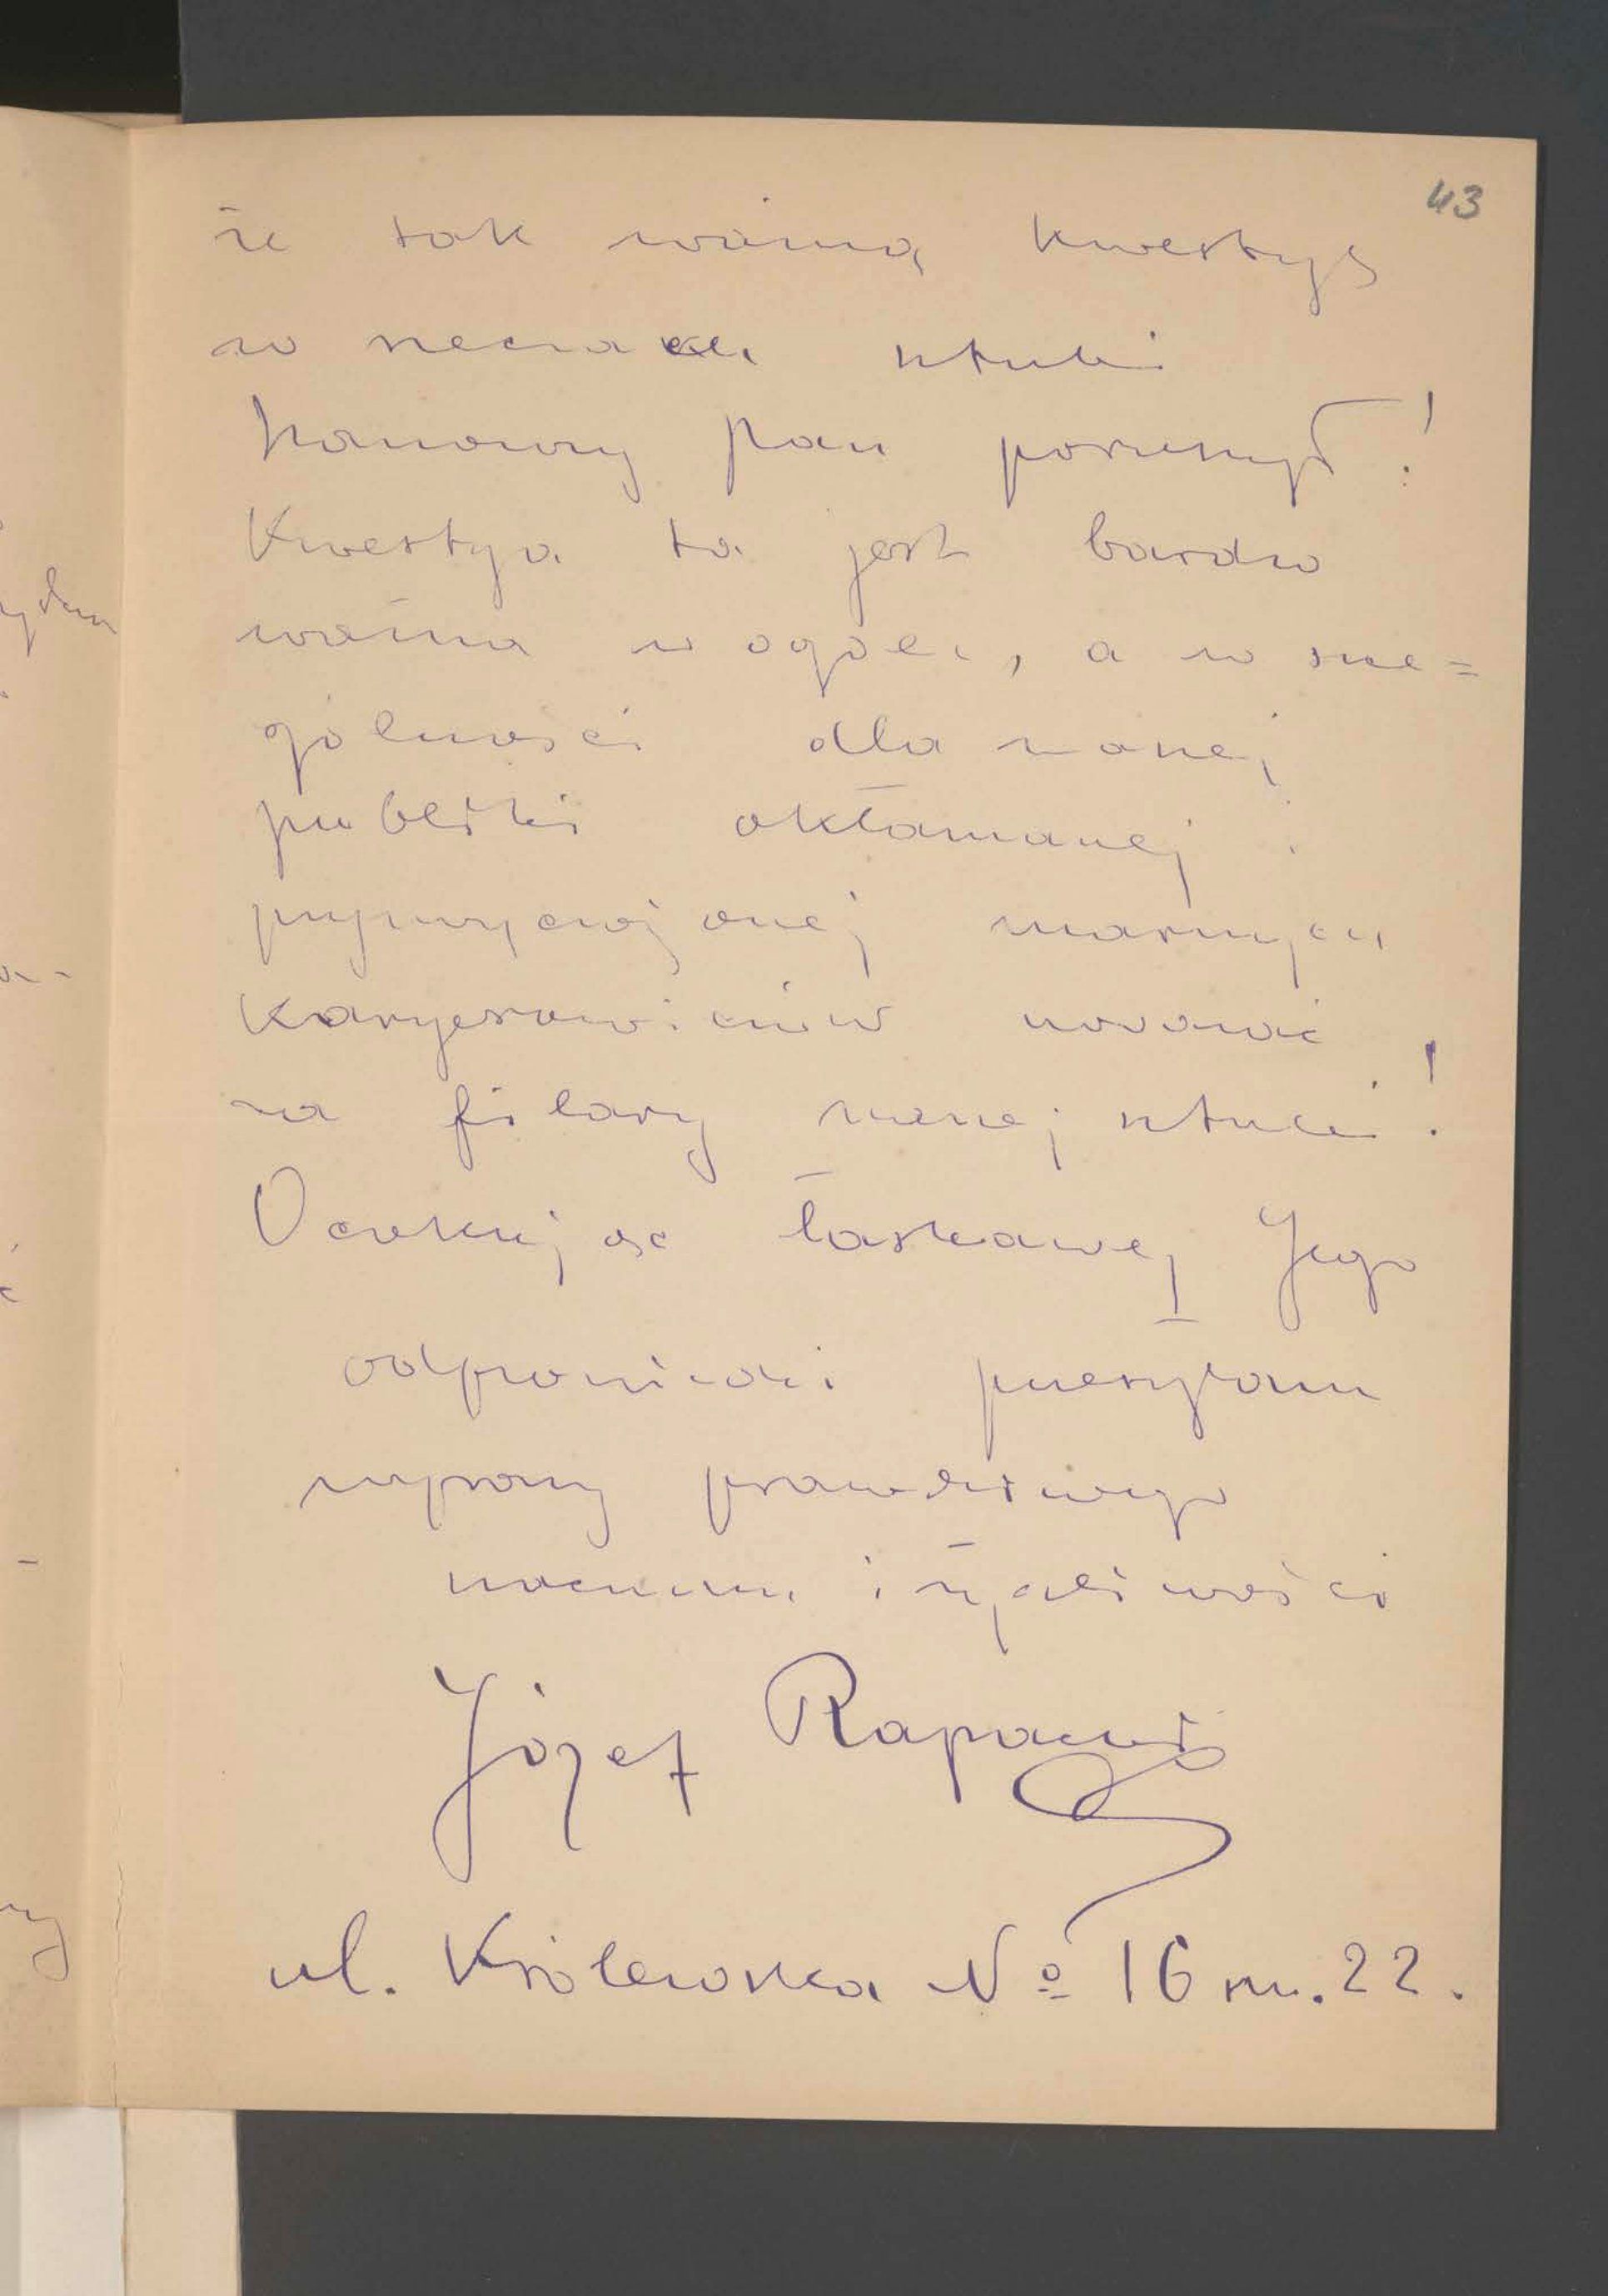 43
że tak ważną kwestyę
w rzeczach sztuki
Szanowny Pan poruszył!
Kwestya ta jest bardzo
ważna w ogóle, a w szcze=
gólności dla naszej
publiki okłamanej i
przyzwyczajonej marnych
karyerowiczów uważać
za filary naszej sztuki!
Oczekując łaskawej Jego
odpowiedzi przesyłam
wyrazy prawdziwego
szacunku i życzliwości
Józef Rapacki
ul. Królewska No 16 m. 22.